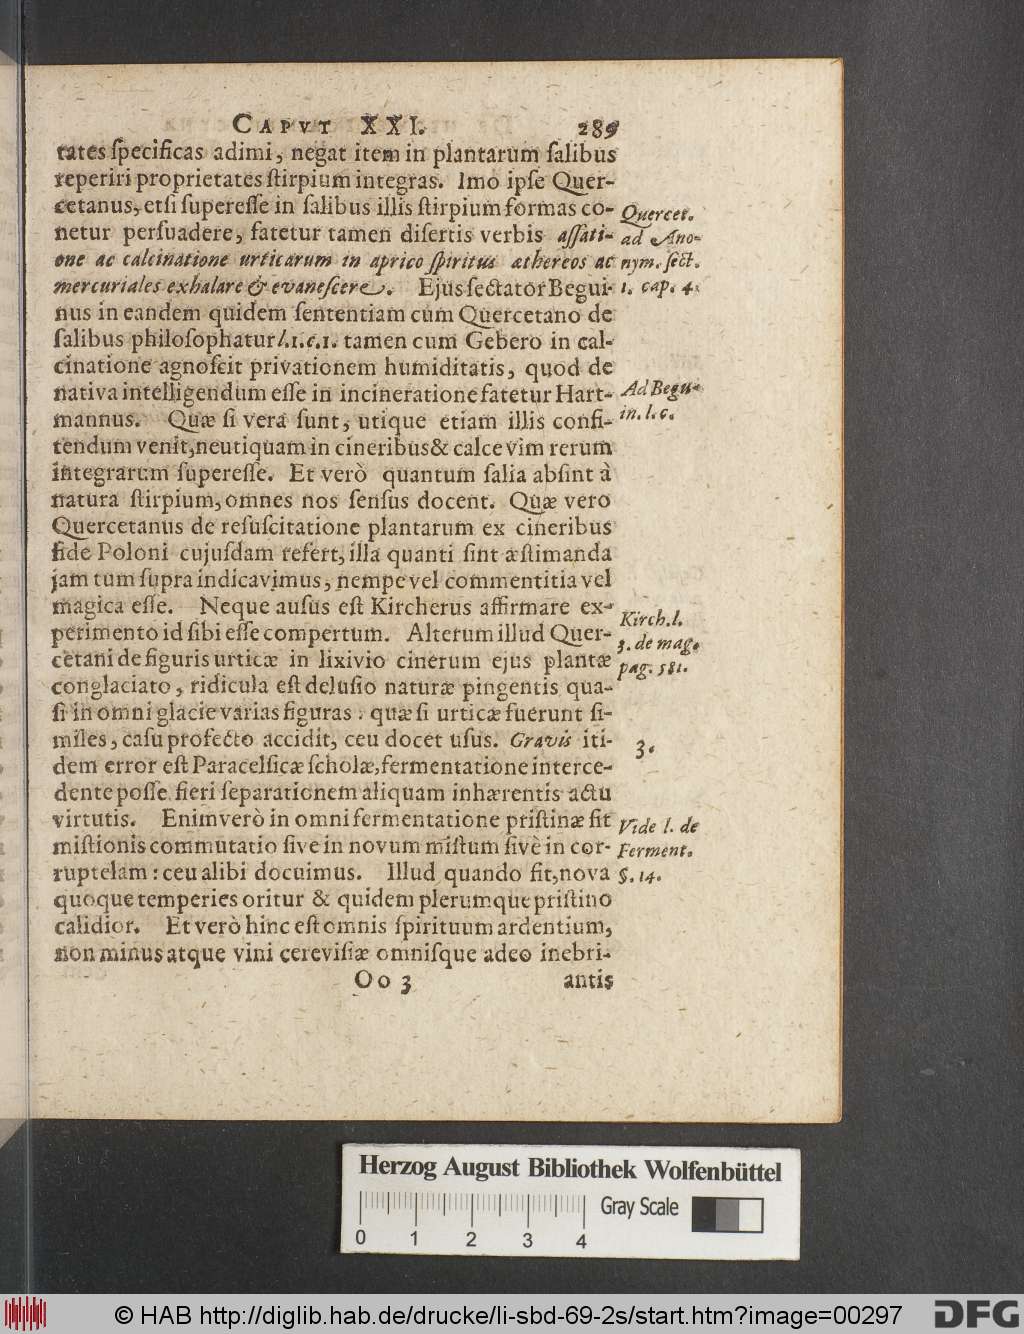 CAPVT XXI. 289
tates ſpecificas adimi, negat item in plantarum ſalibus
reperiri proprietates ſtirpium integras. Imo ipſe Quer-
cetanus, etſi ſupereſſe in ſalibus illis ſtirpium formas co-
netur perſuadere, fatetur tamen diſertis verbis aſſati-
one ac calcinatione urticarum in aprico ſpiritus æthereos ac
mercuriales exhalare & evaneſcere. Ejus ſectator Begui-
nus in eandem quidem ſententiam cum Quercetano de
ſalibus philoſophatur l.1.c.1. tamen cum Gebero in cal-
cinatione agnoſcit privationem humiditatis, quod de
nativa intelligendum eſſe in incineratione fatetur Hart-
mannus. Quæ ſi vera ſunt, utique etiam illis confi-
tendum venit, neutiquam in cineribus & calce vim rerum
integrarum ſupereſſe. Et verò quantum ſalia abſint à
natura ſtirpium, omnes nos ſenſus docent. Quæ vero
Quercetanus de reſuſcitatione plantarum ex cineribus
fide Poloni cujuſdam refert, illa quanti ſint æſtimanda
jam tum ſupra indicavimus, nempe vel commentitia vel
magica eſſe. Neque auſus eſt Kircherus affirmare ex-
perimento id ſibi eſſe compertum. Alterum illud Quer-
cetani de figuris urticæ in lixivio cinerum ejus plantæ
conglaciato, ridicula eſt deluſio naturæ pingentis qua-
ſi in omni glacie varias figuras: quæ ſi urticæ fuerunt ſi-
miles, caſu profecto accidit, ceu docet uſus. Gravis iti-
dem error eſt Paracelſicæ ſcholæ, fermentatione interce-
dente poſſe fieri ſeparationem aliquam inhærentis actu
virtutis. Enimverò in omni fermentatione priſtinæ fit
miſtionis commutatio ſive in novum miſtum ſivè in cor-
ruptelam: ceu alibi docuimus. Illud quando fit, nova
quoque temperies oritur & quidem plerumque priſtino
calidior. Et verò hinc eſt omnis ſpirituum ardentium,
non minus atque vini cereviſiæ omniſque adeo inebri-
Oo 3 antis
Quercet.
ad Ano-
nym. ſect.
1. cap. 4.
Ad Begu-
in. l. c.
Kirch. l.
3. de mag.
pag. 581.
3.
Vide l. de
Ferment.
§. 14.
Herzog August Bibliothek Wolfenbüttel
Gray Scale
0 1 2 3 4
© HAB http://diglib.hab.de/drucke/li-sbd-69-2s/start.htm?image=00297
DFG